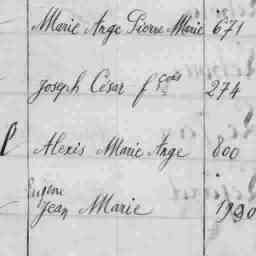 Marie Ange Pierre Marie 671
Joseph César fçois 274
Alexis Marie Ange 800
Eugène
Jean Marie